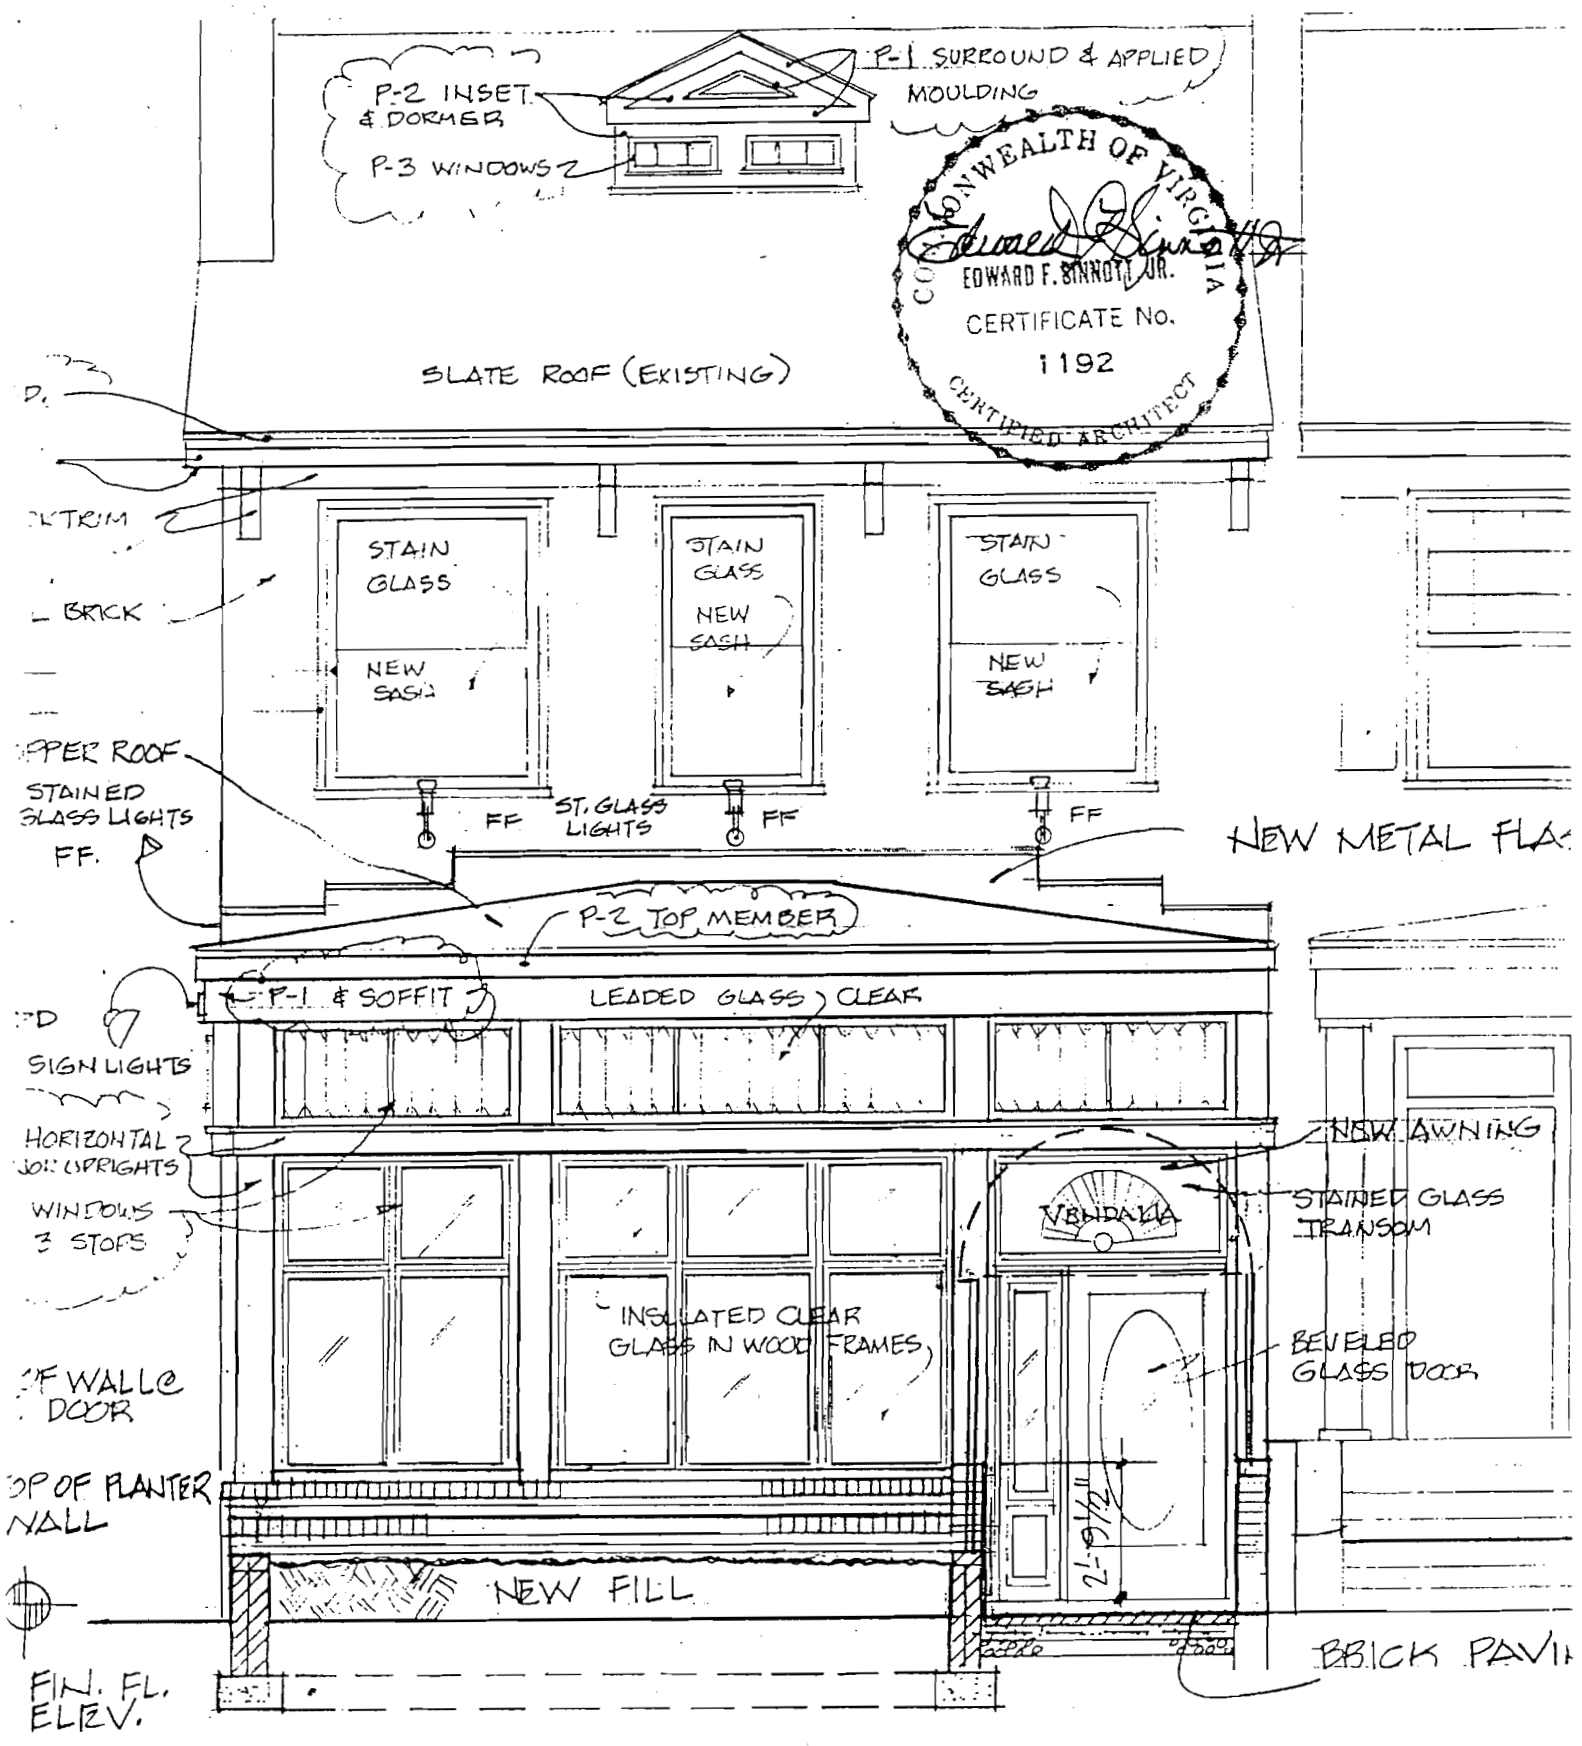 P-1 SURROUND & APPLIED
MOULDING
P-2 INSET
& DORMER
P-3 WINDOWS
COMMONWEALTH OF VIRGINIA
EDWARD F. SINNOTT, JR.
CERTIFICATE No.
1192
CERTIFIED ARCHITECT
SLATE ROOF (EXISTING)
D.
TRIM
BRICK
STAIN
GLASS
NEW
SASH
STAIN
GLASS
NEW
SASH
STAIN
GLASS
NEW
SASH
PPER ROOF
STAINED
GLASS LIGHTS
FF.
FF
ST. GLASS
LIGHTS
FF
FF
NEW METAL FLAS
P-2 TOP MEMBER
P-1 & SOFFIT
LEADED GLASS, CLEAR
SIGN LIGHTS
HORIZONTAL
UPRIGHTS
WINDOWS
3 STOPS
NEW AWNING
STAINED GLASS
TRANSOM
VENDALIA
INSULATED CLEAR
GLASS IN WOOD FRAMES
BEVELED
GLASS DOOR
OF WALL @
DOOR
OP OF PLANTER
WALL
2'-9 1/2"
NEW FILL
FIN. FL.
ELEV.
BRICK PAVIN